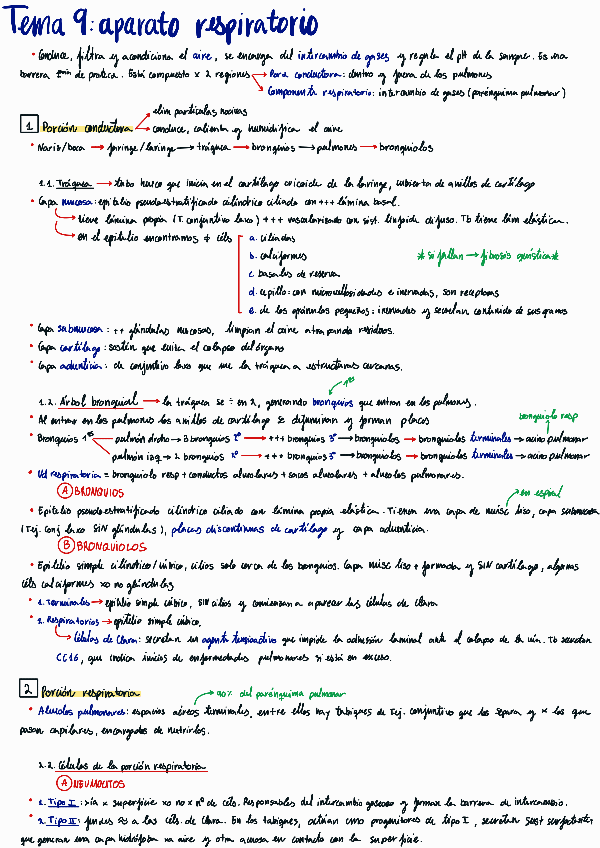 Tema 9: aparato respiratorio
• Conduce, filtra y acondiciona el aire, se encarga del intercambio de gases y regula el pH de la sangre. Es una
barrera de protecc. Está compuesto x 2 regiones → Porc conductora: dentro y fuera de los pulmones
→ Componente respiratorio: intercambio de gases (parénquima pulmonar)
1 Porción conductora → elim partículas nocivas
→ conduce, calienta y humidifica el aire
• Nariz/boca → faringe/laringe → tráquea → bronquios → pulmones → bronquiolos
1.1. Tráquea → tubo hueco que inicia en el cartílago cricoide de la laringe, cubierta de anillos de cartílago
• Capa mucosa: epitelio pseudoestratificado cilíndrico ciliado con +++ lámina basal.
→ tiene lámina propia (T. conjuntivo laxo) +++ vascularizada con sist. linfoide difuso. Tb tiene lám elástica.
→ en el epitelio encontramos ≠ céls
a. ciliadas
b. caliciformes
* si fallan → fibrosis quística *
c. basales de reserva
d. cepillo: con microvellosidades e inervadas, son receptoras
e. de los gránulos pequeños: inervadas y secretan contenido de sus granos
• Capa submucosa: ++ glándulas mucosas, limpian el aire atrapando residuos.
• Capa cartílago: sostén que evita el colapso del órgano
• Capa adventicia: de conjuntivo laxo que une la tráquea a estructuras cercanas.
1.2. Árbol bronquial → la tráquea se ÷ en 2, generando bronquios que entran en los pulmones.
→ 1ºs
• Al entrar en los pulmones los anillos de cartílago se difuminan y forman placas
bronquiolo resp
• Bronquios 1ºs → pulmón drcho → 3 bronquios 2º → +++ bronquios 3º → bronquiolos → bronquiolos terminales → acino pulmonar
→ pulmón izq → 2 bronquios 2º → +++ bronquios 3º → bronquiolos → bronquiolos terminales → acino pulmonar
• Ud respiratoria = bronquiolo resp + conductos alveolares + sacos alveolares + alveolos pulmonares.
A BRONQUIOS
→ en espiral
• Epitelio pseudoestratificado cilíndrico ciliado con lámina propia elástica. Tienen una capa de músc liso, capa submucosa
(Tej. conj laxo SIN glándulas), placas discontinuas de cartílago y capa adventicia.
B BRONQUIOLOS
• Epitelio simple cilíndrico/cúbico, cilios solo cerca de los bronquios. Capa músc liso + formada y SIN cartílago, algunas
céls caliciformes xo no glándulas
• 1. Terminales → epitelio simple cúbico, SIN cilios y comienzan a aparecer las células de Clara
• 2. Respiratorios → epitelio simple cúbico.
→ Células de Clara: secretan un agente tensioactivo que impide la adhesión luminal ante el colapso de la vía. Tb secretan
CC16, que indica inicios de enfermedades pulmonares si está en exceso.
2 Porción respiratoria
→ 90% del parénquima pulmonar
• Alveolos pulmonares: espacios aéreos terminales, entre ellos hay tabiques de tej. conjuntivo que los separa y x los que
pasan capilares, encargados de nutrirlos.
2.2. Células de la porción respiratoria
A NEUMOCITOS
• 1. Tipo I: >ía x superficie xo no x nº de céls. Responsables del intercambio gaseoso y forman la barrera de intercambio.
• 2. Tipo II: a las céls. de Clara. En los tabiques, actúan como progenitores de tipo I, secretan surfactante
que generan una capa hidrófoba xa aire y otra acuosa en contacto con la superficie.